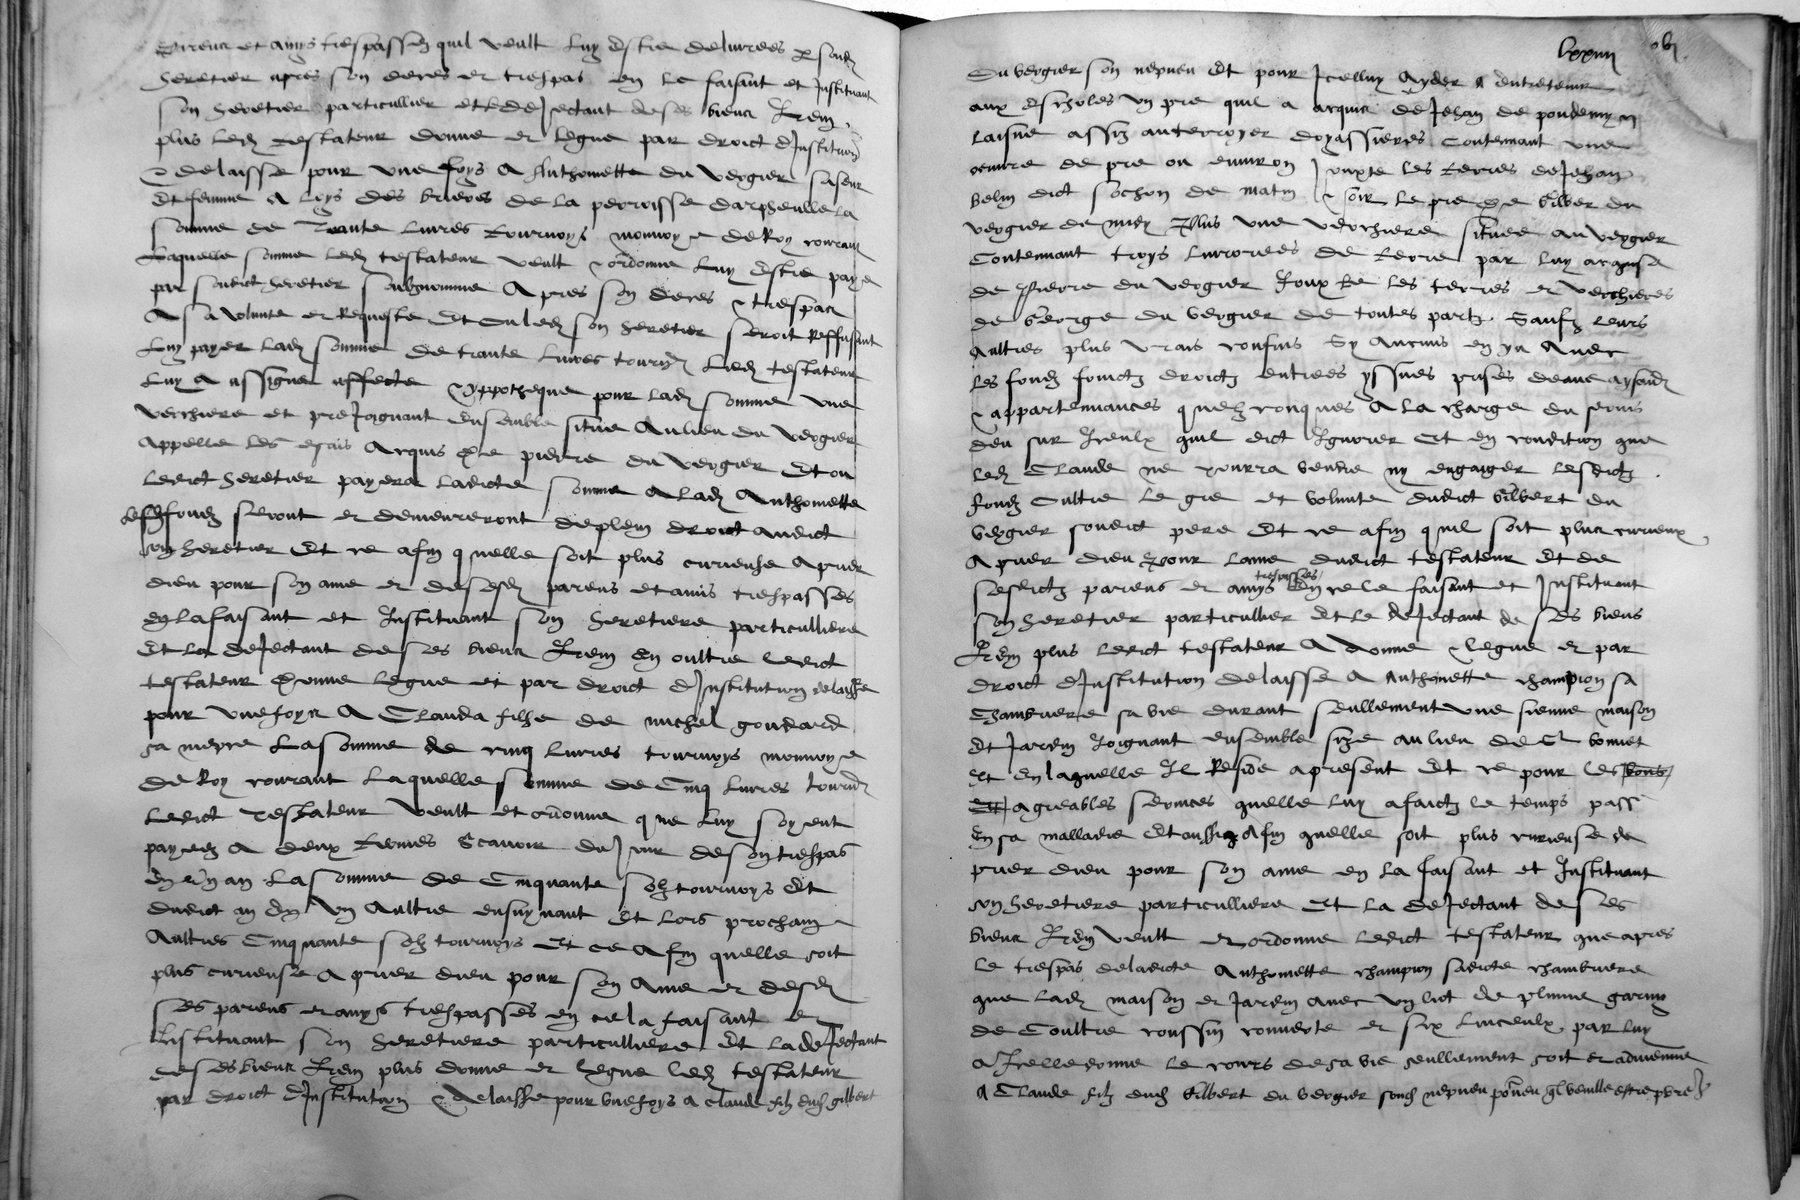 parens et amys trespassez quil veult luy estre delivrees p sond
heretier apres son deces et trespas en le faisant et Instituant
son heretier particullier et le dejectant de ses biens Item
plus led testateur donne et legue par droict dInstitution
& delaisse pour une foys A Anthomette du vergier sa seur
Et femme A loys des brieres de la perroisse darpheulle la
somme de Trante livres tournoys monnoye de Roy courant
Laquelle somme led testateur veult & ordonne luy Estre paye
par sondict heretier soubznomme Apres son deces & trespas
A sa volunte et Requeste Et ou led son heretier seroit Reffusant
Luy payer lad somme de trante livres tourn Led testateur
Luy A assigne affecte & yppotheque pour lad somme une
verchiere et pre Joignant Ensemble situe Au lieu du vergier
Appelle les Acquis de pierre du vergier Et ou
Ledict heretier payera ladicte somme A lad Anthomette
lesd fondz seront et demeureront de plein droict audict
son heretier Et ce afin quelle soit plus curieuse A prier
dieu pour son ame et de sesd parens et amis trespasses
En la faisant et Instituant son heretiere particulliere
Et la dejectant de ses biens Item En oultre ledict
testateur donne legue et par droict dInstitution delaisse
pour une foys A Clauda filhe de michel goudard
sa niepce La somme de cinq livres tournoys monnoye
de Roy courant Laquelle somme de Cinq livres tourn
Ledict testateur veult et ordonne que luy soyent
payez A deux termes Scavoir du Jour de son trespas
En ung an La somme de Cinquante solz tournoys Et
dudict an En ung Aultre ensuyvant Et lors prochain
Aultres Cinquante solz tournoys Et ce Afin quelle soit
plus curieuse A prier dieu pour son Ame et de
ses parens et amys trespasses en ce la faisant et
Instituant son heretiere particulliere Et la dejectant
de ses biens Item plus donne et legue led testateur
par droict dInstitution & delaisse pour une foys A claude filz dud gilbert
lxxiiii
du vergier son nepveu Et pour Icelluy Ayder A entretenir
aux Escholes un pre quil a acquis de Jehan de poudemy
laisne assiz au terroyer doyassieres Contenant une
oeuvre de pre ou environ Jouxte les terres de Jehan
belin dict sochon de matin & soir le pre de Gilber du
vergier de midy Plus une verchiere situee Au vergier
Contenant troys livrorees de terre par luy acquise
de pierre du vergier Jouxte les terres et verchieres
de George du vergier de toutes partz Saufz leurs
Aultres plus vrais confins Sy Aucuns en ya Avec
Les fondz fruictz droictz entrees yssues prises deaue aysances
& appartenances quelzconques A la charge du servis
deu sur Iceulx quil dict Ignorer Et En condition que
Led Claude ne pourra vendre ny engaiger lesdictz
fondz Oultre le gre et volunte dudict Gilbert du
vergier sondict pere Et ce afin quil soit plus curieux
A prier dieu pour lame dudict testateur Et de
sesdictz parens et amys trespasses En ce le faisant et Instituant
son heretier particullier Et le dejectant de ses biens
Item plus ledict testateur A donne & legue et par
droict dInstitution delaisse A Anthomette champion sa
Chambriere sa vie durant seullement une sienne maison
Et Jardin Joignant ensemble size au lieu de St bonnet
Et En laquelle Il Reside apresent Et ce pour les bons
Et agreables services quelle luy a faictz le temps passe
En sa malladie Et aussi Afin quelle soit plus curieuse de
prier dieu pour son ame en la faisant et Instituant
son heretiere particulliere Et la dejectant de ses
biens Item veult et ordonne ledict testateur que apres
le trespas de ladicte Anthomette champion sadicte chambriere
que lad maison et Jardin avec ung lict de plume garny
de Coultre coussin couverte et six linceulx par luy
a Icelle donne le cours de sa vie seullement soit et advienne
A Claude filz dud Gilbert du vergier sond nepveu